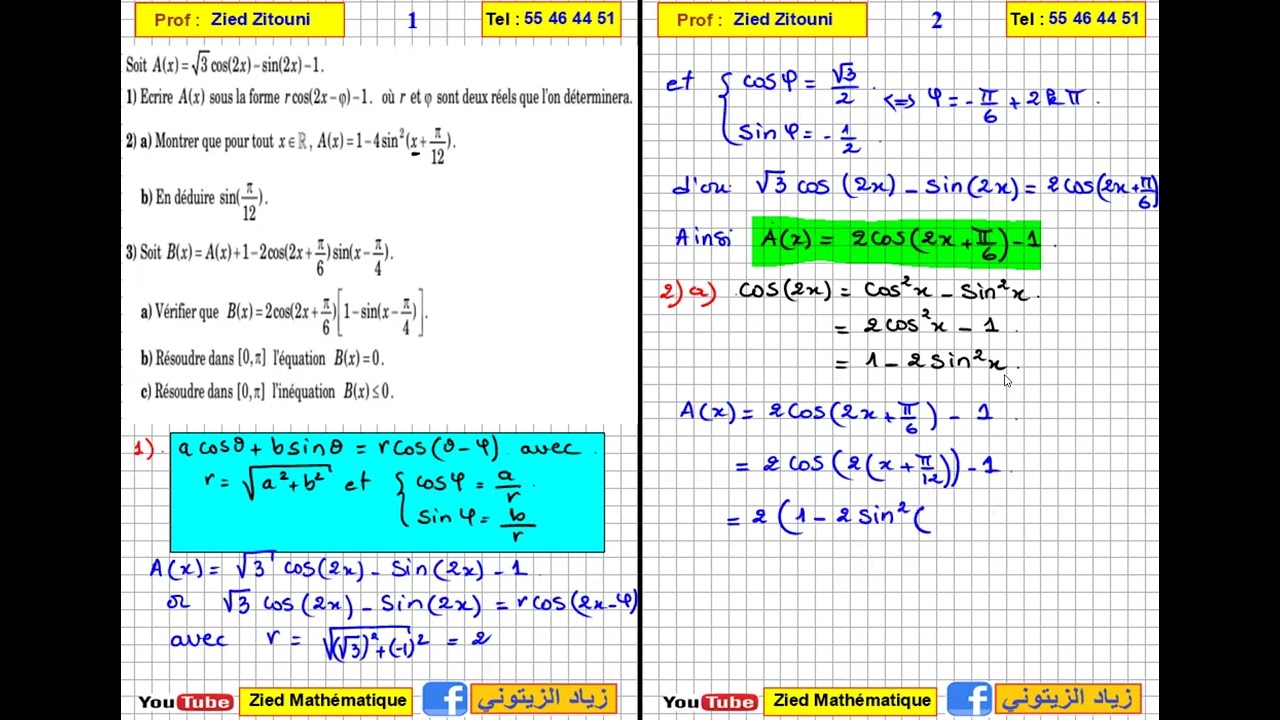 Prof : Zied Zitouni 1 Tel : 55 46 44 51
Soit A(x)=√3 cos(2x)−sin(2x)−1.
1) Ecrire A(x) sous la forme r cos(2x−φ)−1. où r et φ sont deux réels que l'on déterminera.
2) a) Montrer que pour tout x∈ℝ, A(x)=1−4sin²(x+π/12).
b) En déduire sin(π/12).
3) Soit B(x)=A(x)+1−2cos(2x+π/6)sin(x−π/4).
a) Vérifier que B(x)=2cos(2x+π/6)[1−sin(x−π/4)].
b) Résoudre dans [0,π] l'équation B(x)=0.
c) Résoudre dans [0,π] l'inéquation B(x)≤0.
1). a cosθ + b sinθ = r cos(θ−φ) avec
r = √(a²+b²) et { cosφ = a/r .
sinφ = b/r
A(x) = √3 cos(2x) − sin(2x) − 1
or √3 cos(2x) − sin(2x) = r cos(2x−φ)
avec r = √((√3)²+(−1)²) = 2
YouTube Zied Mathématique f زياد الزيتوني
Prof : Zied Zitouni 2 Tel : 55 46 44 51
et { cosφ = √3/2 ⟺ φ = −π/6 + 2kπ .
sinφ = −1/2
d'où √3 cos(2x) − sin(2x) = 2cos(2x+π/6)
Ainsi A(x) = 2cos(2x+π/6) − 1 .
2) a) cos(2x) = cos²x − sin²x .
= 2cos²x − 1
= 1 − 2sin²x .
A(x) = 2cos(2x+π/6) − 1 .
= 2cos(2(x+π/12)) − 1
= 2(1 − 2sin²(
YouTube Zied Mathématique f زياد الزيتوني